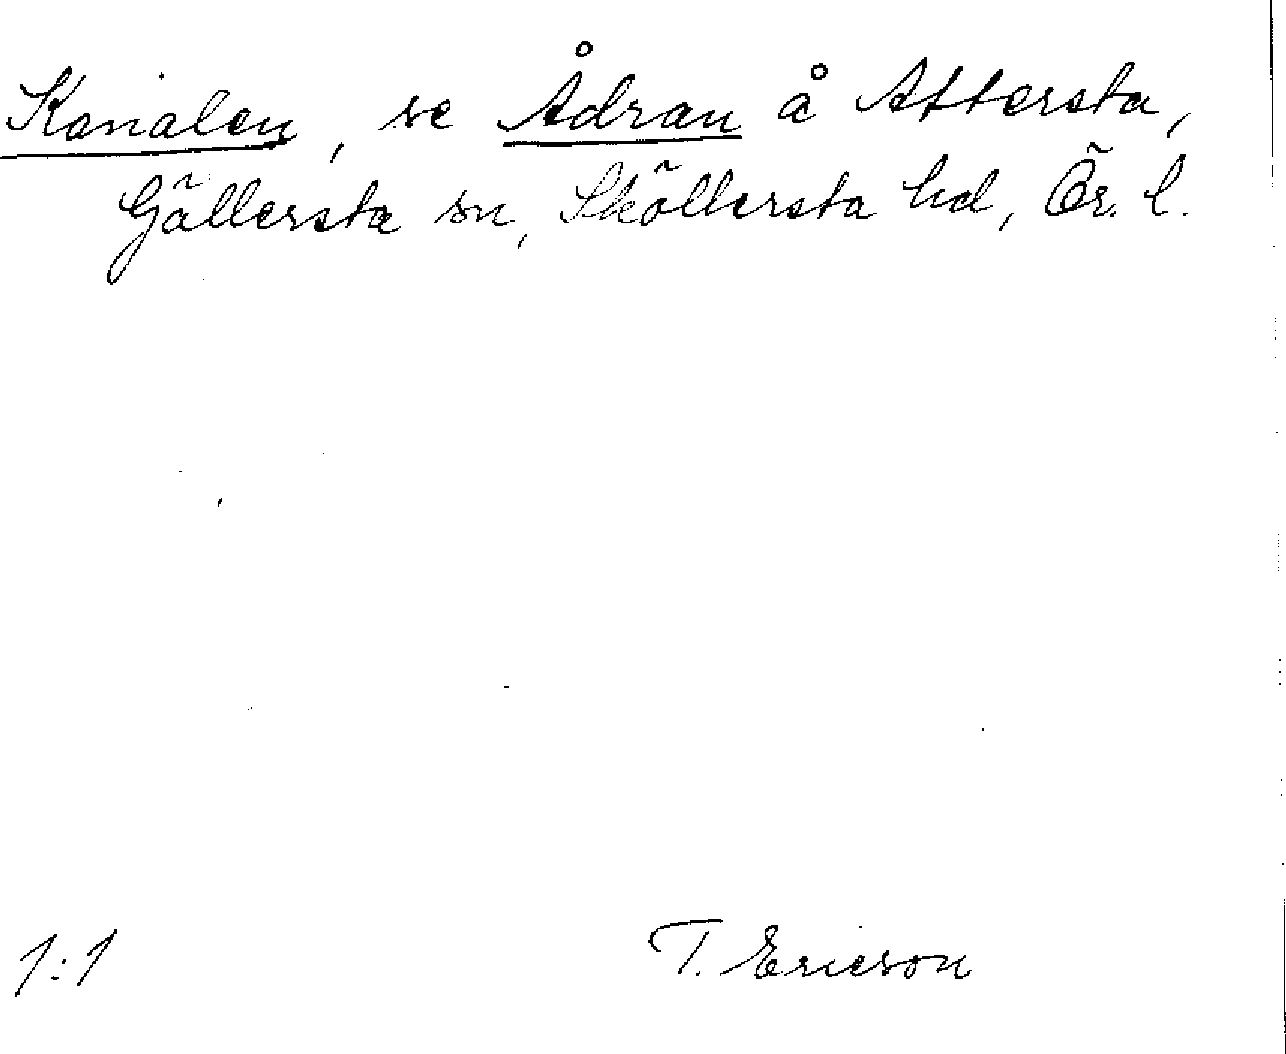 Kanalen, se Ådran å Attersta,
Gällersta sn, Sköllersta hd, Ör. l.
1:1 T. Ericson